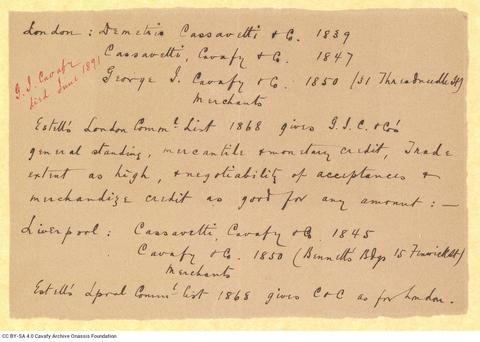 London : Demetrio Cassavetti & C. 1839
Cassavetti, Cavafy & C. 1847
G. I. Cavafy
died June 1891
George I. Cavafy & C. 1850 (31 Threadneedle St)
Merchants
Estell's London Comml List 1868 gives G.I.C. & Co's
general standing, mercantile & monetary credit, Trade
extent as high, & negotiability of acceptances &
merchandize credit as good for any amount : —
Liverpool : Cassavetti, Cavafy & Co. 1845
Cavafy & Co. 1850 (Bennett's Bdgs 15 Fenwick St)
Merchants
Estell's Lpool Comml list 1868 gives C & C as for London.
CC BY-SA 4.0 Cavafy Archive Onassis Foundation